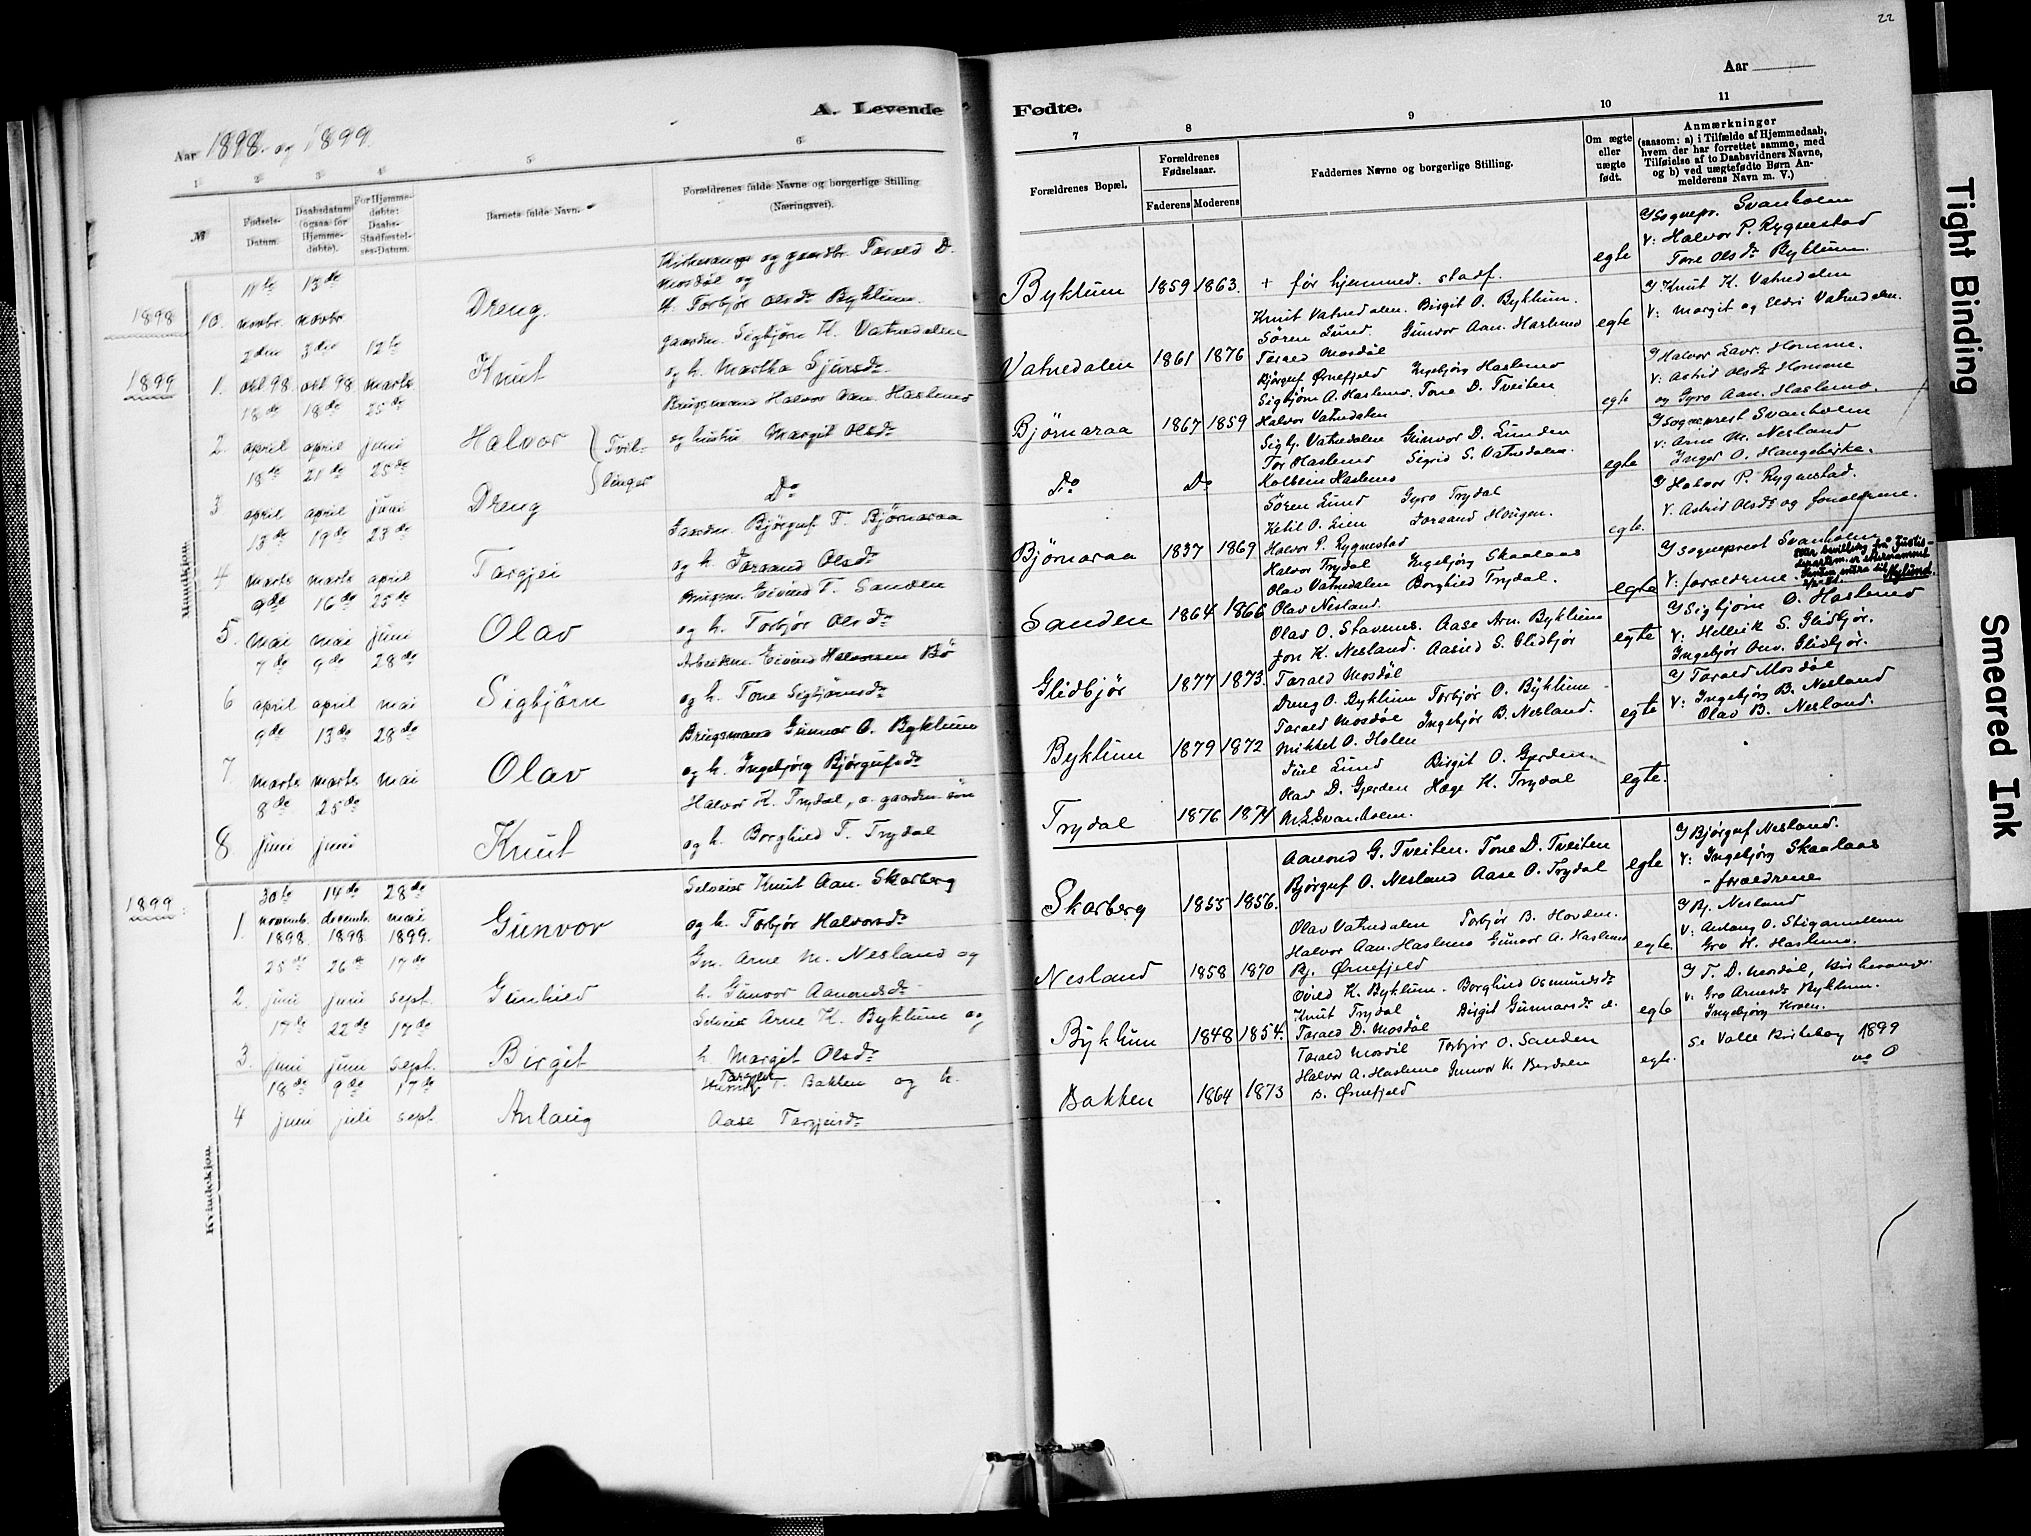 22
Aar
A. Levende Fødte.
Aar 1898 og 1899.
1 2 3 4 5 6 7 8 9 10 11
№
Fødsels-Datum.
Daabsdatum (ogsaa for Hjemmedøbte).
For Hjemmedøbte: Daabs-Stadfæstelses-Datum.
Barnets fulde Navn.
Forældrenes fulde Navne og borgerlige Stilling (Næringsvei).
Forældrenes Bopæl.
Forældrenes Fødselsaar.
Faderens Moderens
Faddernes Navne og borgerlige Stilling.
Om ægte eller uægte født.
Anmærkninger
(saasom: a) i Tilfælde af Hjemmedaab,
hvem der har forrettet samme, med
Tilføielse af to Daabsvidners Navne,
og b) ved uægtefødte Børn Anmelderens Navn m. V.)
Mandkjøn.
1898 10. 11te novbr. 13de novbr Dreng.
Kirkesanger og gaardbr. Tarald D.
Mosdøl og
h. Torbjør Olsdr Byklum.
Byklum 1859 1863. + før hjemmed. stadf. egte
Sognepr. Svanholm
V: Halvor P. Rygnestad
Tore Olsdr Byklum.
1899 1. 2den okt 98 3die okt 98 12te marts Knut
gaardm. Sigbjørn K. Vatnedalen
og h. Martha Sjursdr
Vatnedalen 1861 1876
Knut Vatnedalen. Birgit O. Byklum.
Søren Lund. Gunvor Aan. Haslemo
Tarald Mosdøl
egte
Knut K. Vatnedalen
V: Margit og Vatnedalen.
2 13de april 18de april 25de juni Halvor Tvil-
Brugsmand Halvor Aan. Haslemo
og hustru Margit Olsdr
Bjørnaraa 1867 1859
Bjørguf Ørnefjeld Ingebjørg Haslemo
Sigbjørn A. Haslemo. Tone D. Tveiten
Halvor Vatnedalen
egte
Halvor Lavr. Homme.
V: Astrid Olsdr Homme
og Gyro Aan. Haslemo.
3 18de april 21de april 25de juni Dreng linger
Do
Do Do
Sigbj. Vatnedalen Gunvor D. Lunden
Tor Haslemo Sigrid S. Vatnedalen.
Kolbein Haslemo
egte
Sogneprest Svanholm
V: Arne M. Nesland
Inger O.
4 13de marts 19de marts 23de april Targjei
Gaardm. Bjørguf T. Bjørnaraa
og h. Joraand Olsdr
Bjørnaraa 1837 1869
Søren Lund Gyro Trydal
Ketil O. Lien Joraand Hougen.
Halvor P. Rygnestad
egte.
Halvor P. Rygnestad.
V: Astrid Olsdr og forældrene.
5. 9de mai 16de mai 25de juni Olav
Brugsm. Eivind T. Sanden
og h. Torbjør Olsdr
Sanden 1864 1866
Halvor Trydal Ingebjørg Skaalaas
Olav Vatnedalen Borghild Trydal.
Olav Nesland.
egte
Sogneprest Svanholm
V: forældrene.
Nylund.
6 7de april 9de april 28de mai Sigbjørn
Arbeidsm. Eivind Halvorsen Bø
og h. Tone Sigbjørnsdr
Glidbjør 1877 1873.
Olav O. Stavenes. Aase Arn. Byklum
Jon K. Nesland. Aasild S. Glidbjør
Tarald Mosdøl
egte
Sigbjørn O. Haslemo
V: Hellvik S. Glidbjør.
Ingebjør Onv. Glidbjør.
7 9de marts 13de marts 28de mai Olav
Brugsmand Gunnar O. Byklum
og h. Ingebjørg Bjørgufsdr
Byklum 1879 1872
Dreng O. Byklum Torbjør O. Byklum
Tarald Mosdøl Ingebjør B. Nesland.
Mikkel O. Holen
egte
Tarald Mosdøl
V: Ingebjørg B. Nesland
Olav B. Nesland.
8 8de juni 25de juni Knut
Halvor K. Trydal, e. gaardm. søn
og h. Borghild T. Trydal
Trydal 1876 1874
Juel Lund Birgit O. Gjerden
Olav D. Gjerden Hæge K. Trydal
M. L. Svanholm.
egte.
Kvindekjøn.
1899 1. 30te novemb. 1898. 14de decemb. 1898 28de mai 1899. Gunvor
Selveier Knut Aan. Skarberg
og h. Torbjør Halvorsdr
Skarberg 1855 1856.
Aanond G. Tveiten. Tone D. Tveiten
Bjørguf O. Nesland Aase O. Trydal
egte
Bjørguf Nesland.
V: Ingebjørg Skaalaas
- forældrene
2. 25de juni 26de juni 17de sept. Gunhild
Gm. Arne M. Nesland og
h. Gunvor Aanondsdr
Nesland 1858 1870
Olav Vatnedalen Torbjør B. Hovden.
Halvor Aan. Haslemo Gunvor A. Haslemo
Bj. Ørnefjeld
egte
Bj. Nesland
V: Anlaug O. Stigamillom
Gro H. Haslemo.
3 17de juni 22de juni 17de sept. Birgit
Selveier Arne K. Byklum og
h. Margit Olsdr
Byklum 1848 1854.
Eivild K. Byklum. Borghild Osmundsdr
Knut Trydal Birgit Gunnarsdr
Tarald D. Mosdøl
egte
T. D. Mosdøl, kirkesanger
V: Gro Arnesdr Byklum.
Ingebjørg Kroen.
4 18de juni 9de juli 17de sept. Anlaug
Targjei T. Bakken og h.
Aase Targjeisdr
Bakken 1864 1873
Tarald Mosdøl Torbjør O. Sanden
Halvor A. Haslemo Gunvor K. Berdalen
B. Ørnefjeld
egte.
Se Valle Kirkebog 1899
no 0
Tight Binding
Smeared Ink